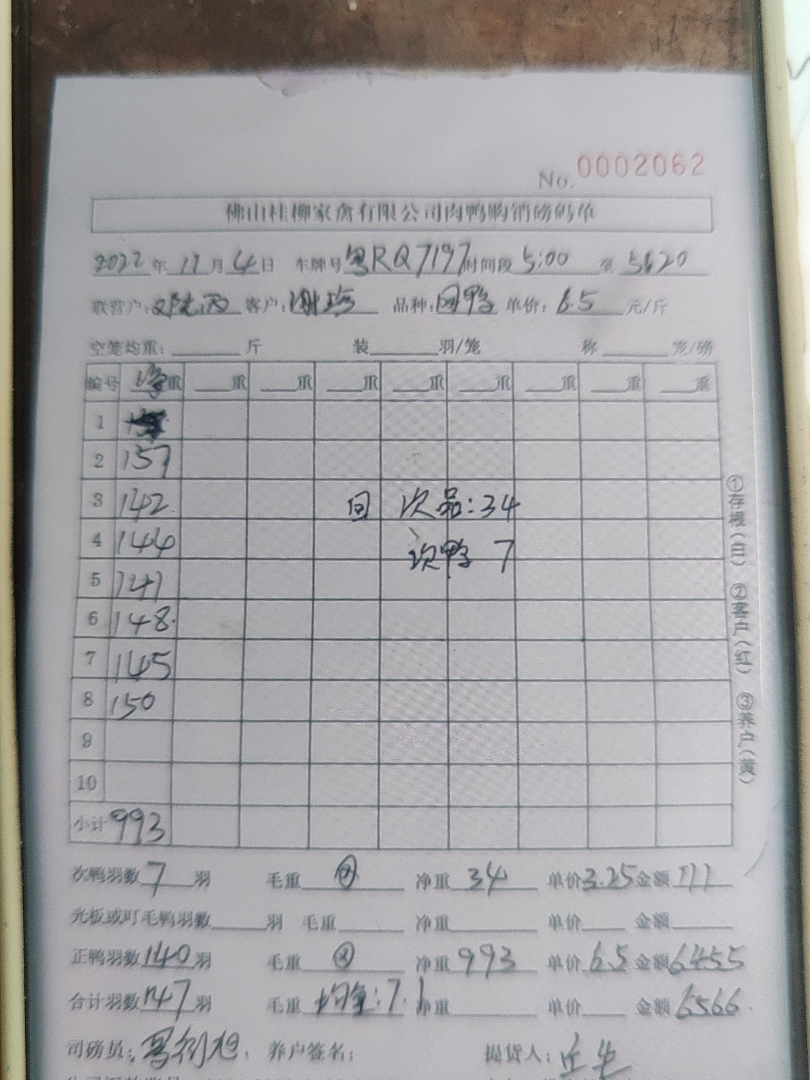 No. 0002062
佛山桂柳家禽有限公司肉鸭购销磅码单
2022年 11月 4日 车牌号 粤RQ7197 时间段 5:00 至 5:620
联营户: 客户:谢 品种: 鸭 单价: 6.5 元/斤
空笼均重: 斤 装 羽/笼 称 笼/磅
编号 净重 重 重 重 重 重 重 重 重
1
2 157
3 142 回 次品:34
4 144 次鸭 7
5 141
6 148
7 145
8 150
9
10
小计 993
①存根(白) ②客户(红) ③养户(黄)
次鸭羽数 7 羽 毛重 净重 34 单价 3.25 金额 111
光板或盯毛鸭羽数 羽 毛重 净重 单价 金额
正鸭羽数 140 羽 毛重 净重 993 单价 6.5 金额 6455
合计羽数 147 羽 毛重 均重:7.1 净重 单价 金额 6566
司磅员: 养户签名: 提货人: